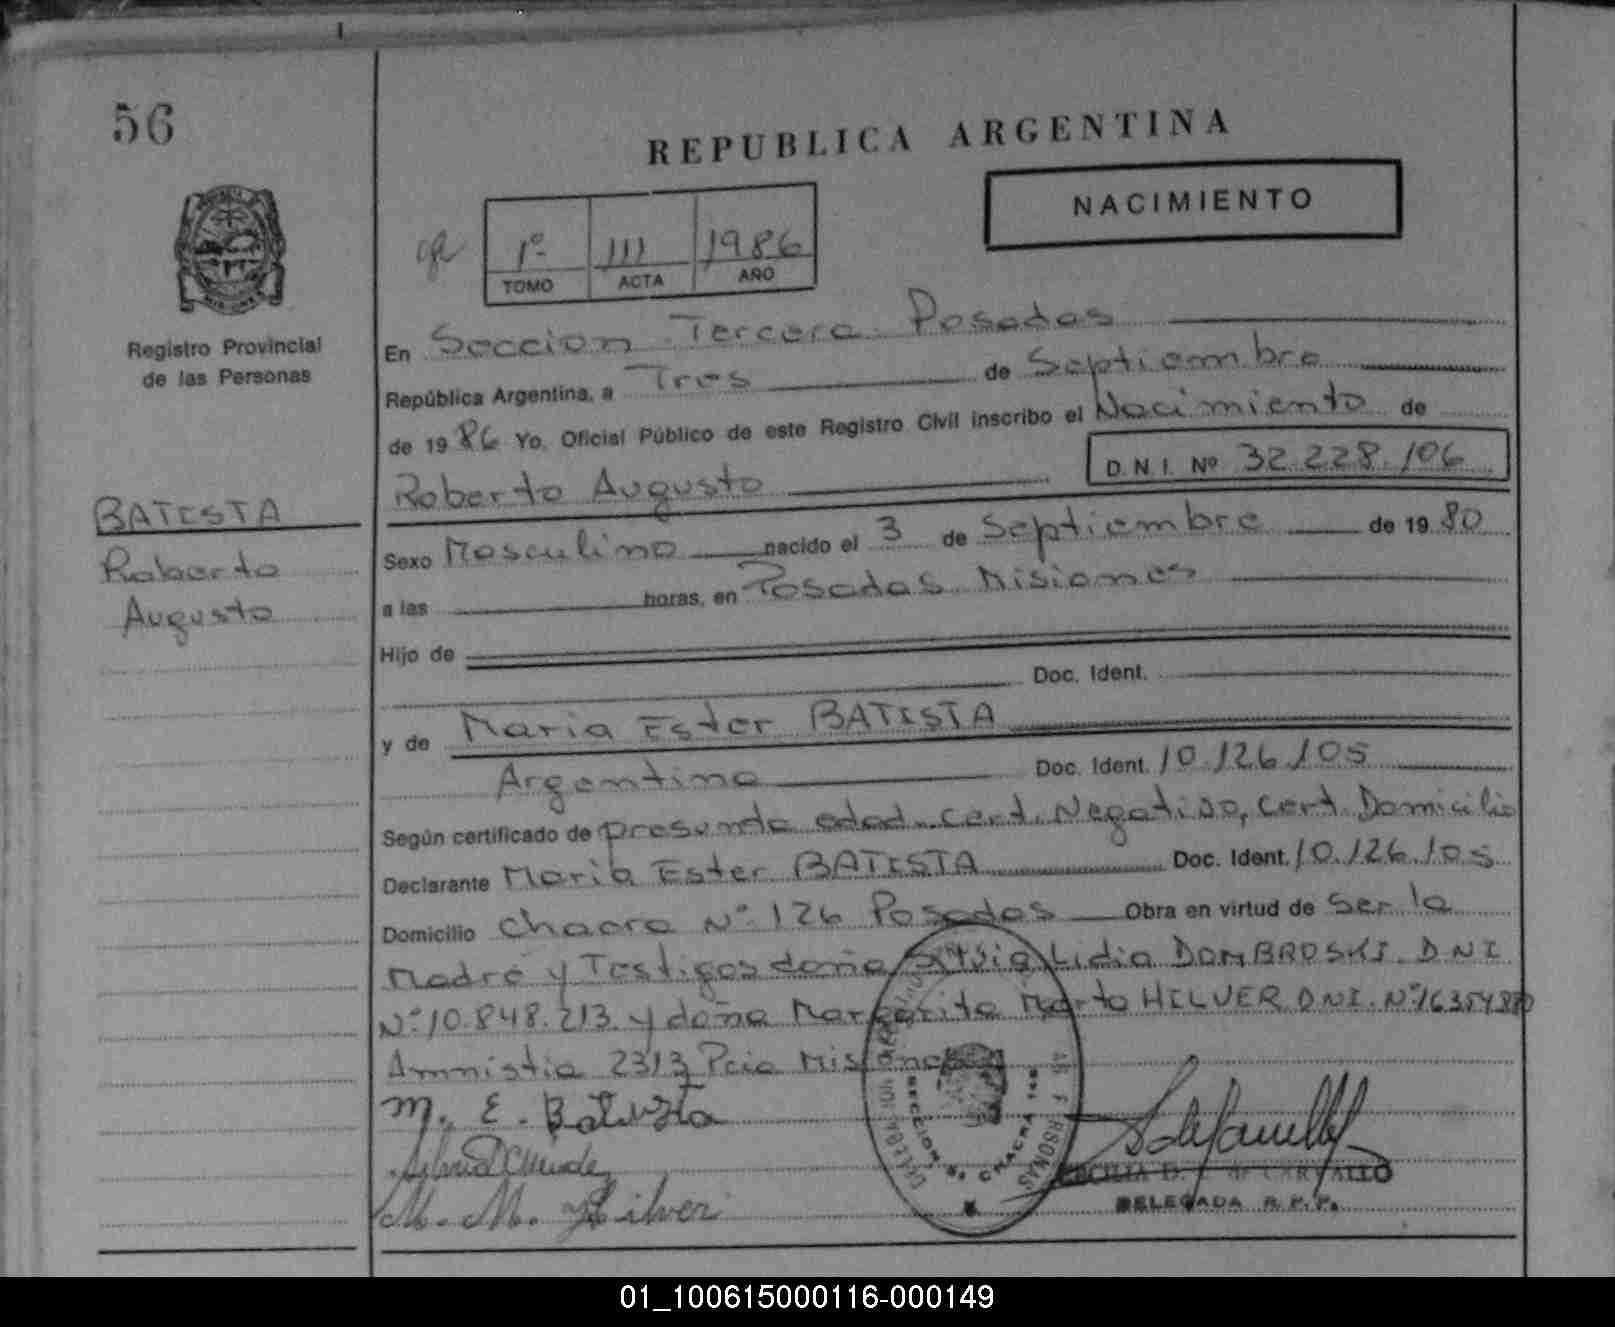 56
REPUBLICA ARGENTINA
NACIMIENTO
1º 111 1986
TOMO ACTA AÑO
Registro Provincial
de las Personas
En Seccion Tercera Posadas
República Argentina, a Tres de Septiembre
de 1986 Yo, Oficial Público de este Registro Civil inscribo el Nacimiento de
D. N. I. Nº 32.228.106
Roberto Augusto
BATISTA
Roberto
Augusto
Sexo Masculino nacido el 3 de Septiembre de 1980
a las horas, en Posadas Misiones
Hijo de
Doc. Ident.
y de Maria Ester BATISTA
Argentina Doc. Ident. 10.126.105
Según certificado de presunta edad. cert. Negativo, cert. Domicilio
Declarante Maria Ester BATISTA Doc. Ident. 10.126.105
Domicilio Chacra Nº 126 Posadas Obra en virtud de Ser la
Madre y Testigos doña Silvia Lidia DOMBROSKI. DNI
Nº 10.848.213 y doña Margarita Marta HILVER DNI. Nº 16354880
Amnistia 2313 Pcia Misiones
M. E. Batista
M. M. Hilver
SECCION 5a. CHACRA
DE CARVALLO
DELEGADA R. P. P.
01_100615000116-000149